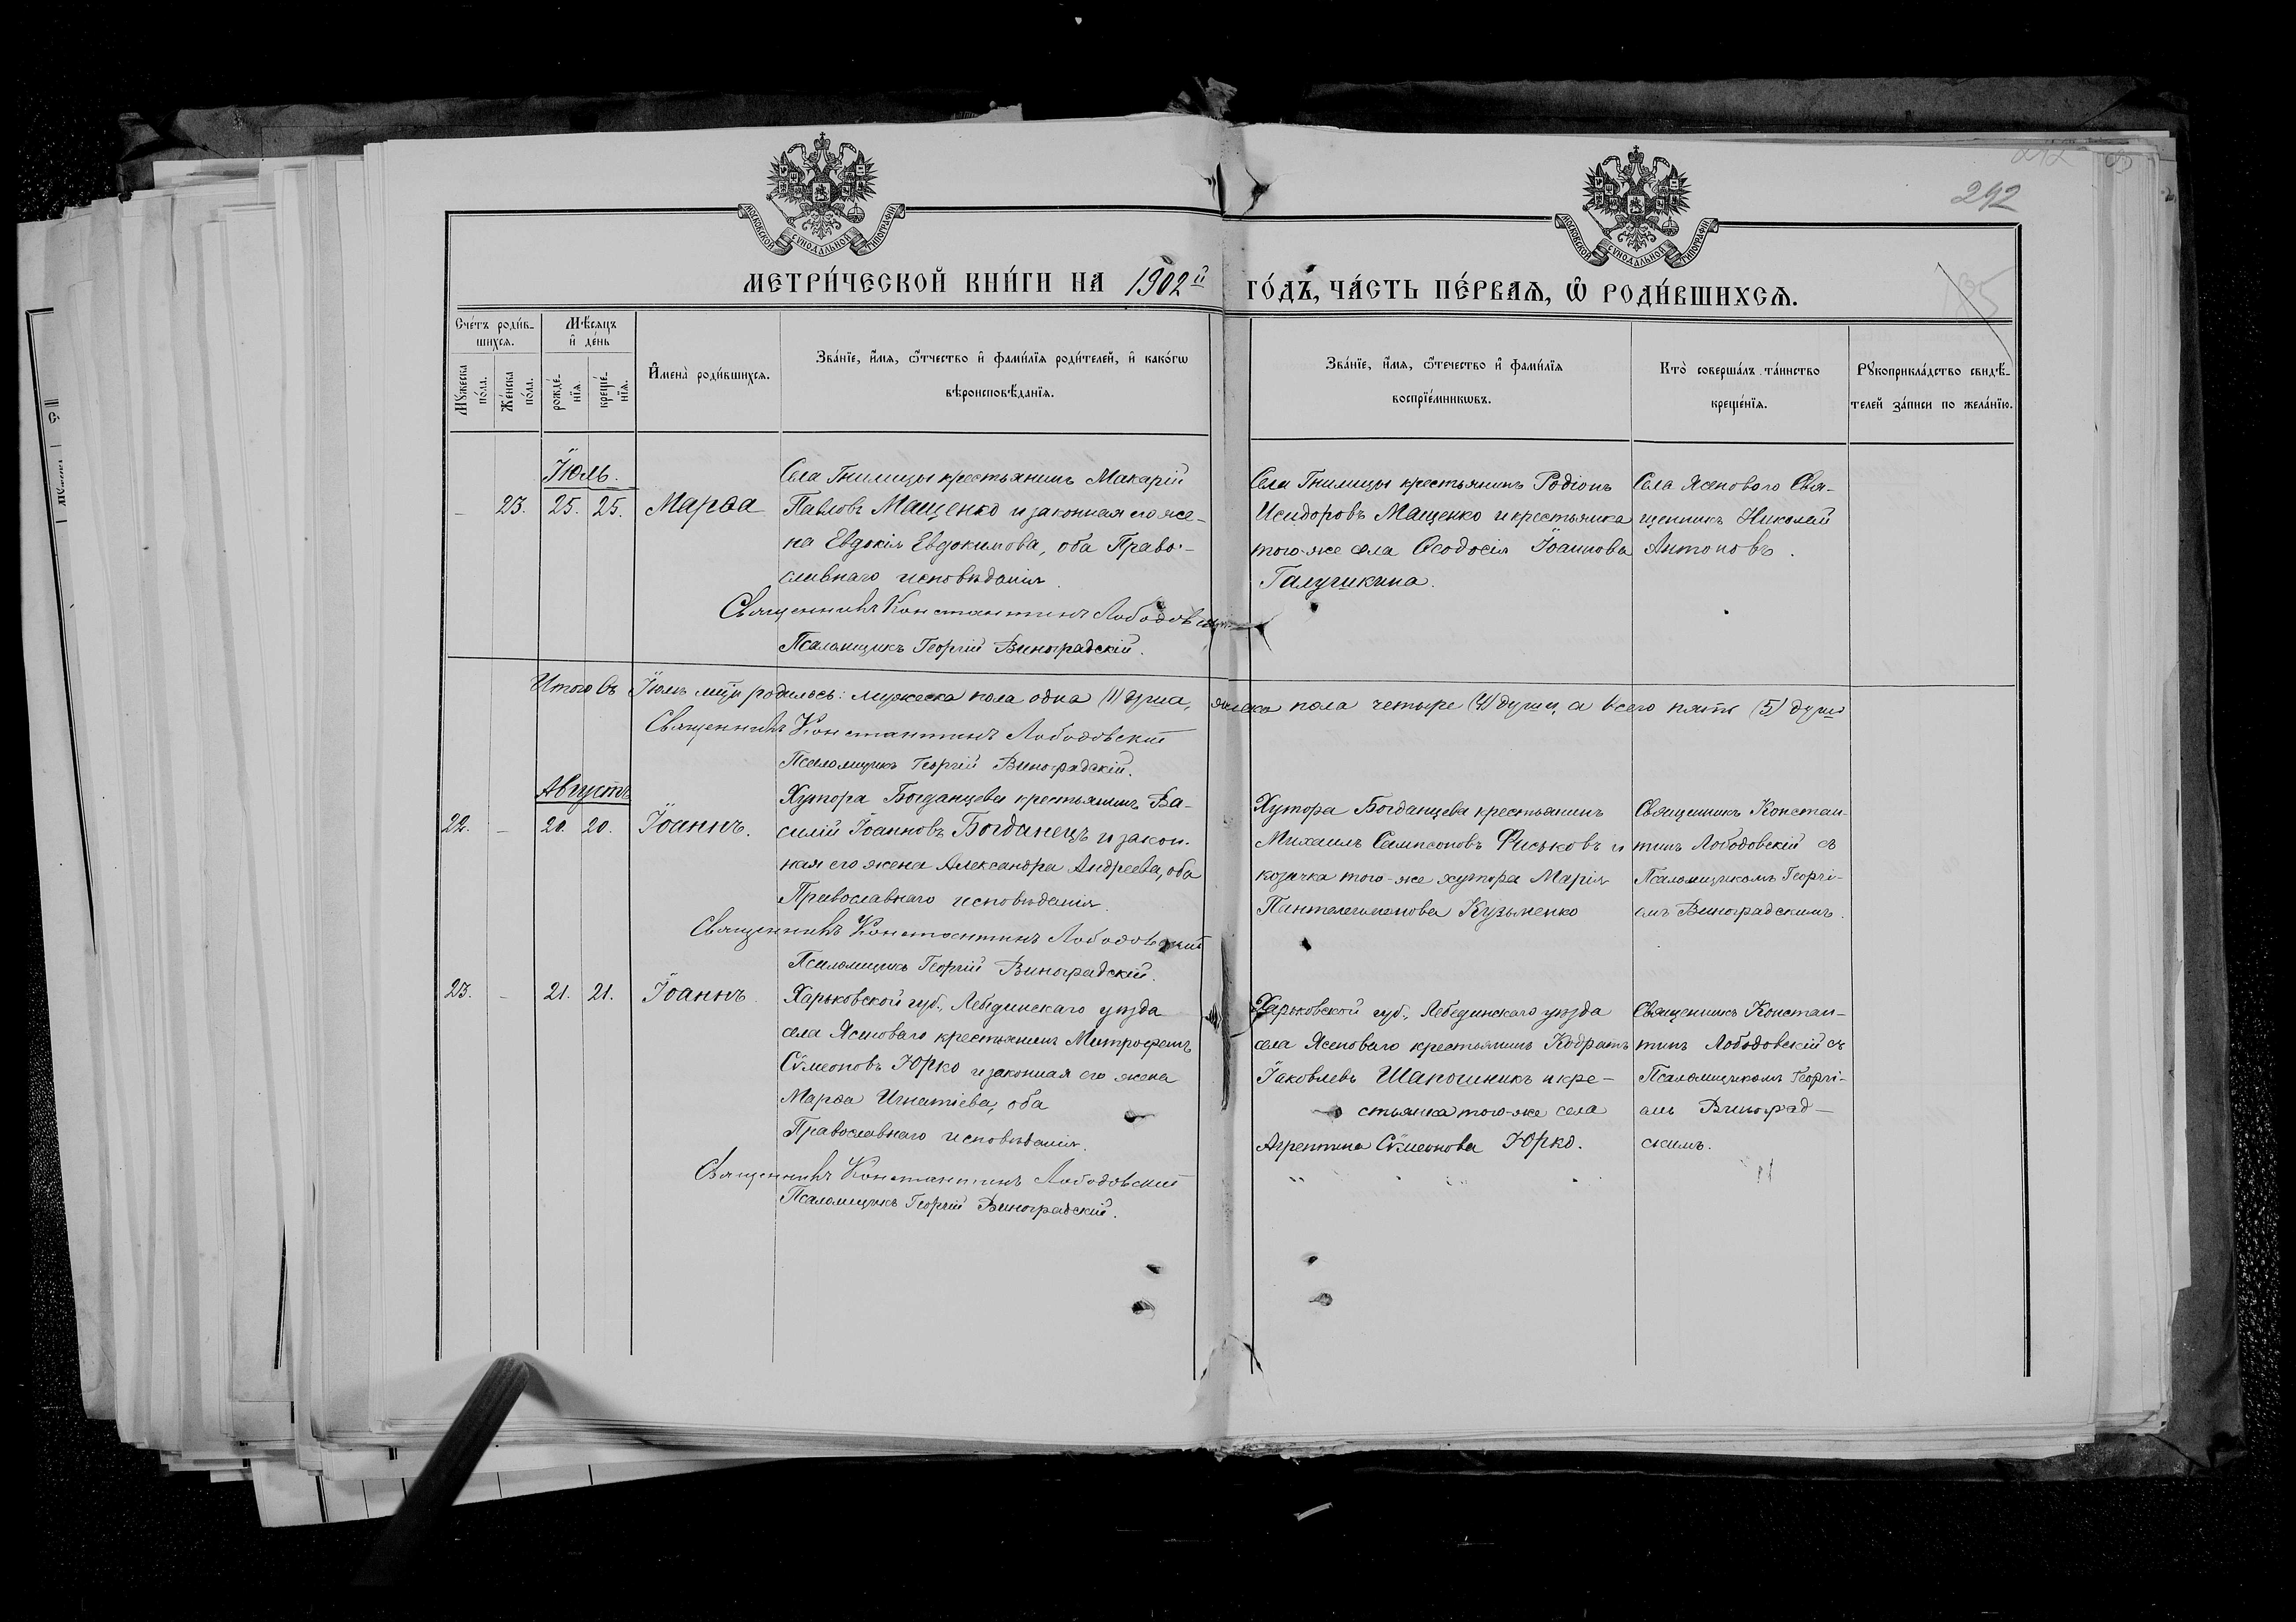 МОСКОВСКОЙ СѴНОДАЛЬНОЙ ТИПОГРАФІИ
МОСКОВСКОЙ СѴНОДАЛЬНОЙ ТИПОГРАФІИ
292
МЕТРИ́ЧЕСКОЙ КНИ́ГИ НА 1902й ГО́ДЪ, ЧА́СТЬ ПЕ́РВАѦ, Ѽ РОДИ́ВШИХСѦ.
185
Сче́тъ роди́в-
шихсѧ.
Мꙋжеска по́ла.
Же́нска по́ла.
Мѣ́сѧцъ и҆ де́нь
рожде́-
нїѧ.
креще́-
нїѧ.
И҆мена̀ роди́вшихсѧ.
Зва́нїе, и҆́мѧ, ѻ҆́тчество и҆ фами́лїѧ роди́телей, и҆ како́гѡ
вѣроисповѣ́данїѧ.
Зва́нїе, и҆́мѧ, ѻ҆́течество и҆ фами́лїѧ
воспрїе́мникѡвъ.
Кто̀ соверша́лъ та́инство
креще́нїѧ.
Рꙋкоприкла́дство свидѣ́-
телей за́писи по жела́нїю.
Іюль.
– 23. 25. 25. Марѳа
Села Гнилицы крестьянинъ Макарій
Павловъ Мащенко и законная его же-
на Евдокія Евдокимова, оба Право-
славнаго исповѣданія.
Священникъ Константинъ Лободовскій
Псаломщикъ Георгій Виноградскій.
Села Гнилицы крестьянинъ Родіонъ
Исидоровъ Мащенко и крестьянка
того-же села Ѳеодосія Іоаннова
Галушкина.
Села Ясенового Свя-
щенникъ Николай
Антоновъ.
Итого въ Іюлѣ м-цѣ родилось: мужеска пола одна (1) душа, женска пола четыре (4) души, а всего пять (5) душъ
Священникъ Константинъ Лободовскій
Псаломщикъ Георгій Виноградскій.
Августъ
22. – 20. 20. Іоаннъ.
Хутора Богданцева крестьянинъ Ва-
силій Іоанновъ Богданецъ и закон-
ная его жена Александра Андреева, оба
Православнаго исповѣданія.
Священникъ Константинъ Лободовскій
Псаломщикъ Георгій Виноградскій.
Хутора Богданцева крестьянинъ
Михаилъ Сампсоновъ Фиськовъ и
козачка того-же хутора Марія
Пантелеимонова Кузьменко
Священникъ Констан-
тинъ Лободовскій съ
Псаломщикомъ Георгі-
емъ Виноградскимъ.
23. – 21. 21. Іоаннъ.
Харьковской губ., Лебединскаго уѣзда
села Ясеноваго крестьянинъ Митрофанъ
Сѵмеоновъ Юрко и законная его жена
Марѳа Игнатіева, оба
Православнаго исповѣданія.
Священникъ Константинъ Лободовскій
Псаломщикъ Георгій Виноградскій.
Харьковской губ., Лебединскаго уѣзда
села Ясеноваго крестьянинъ Кодратъ
Іаковлевъ Шапошникъ и кре-
стьянка того-же села
Агрепина Сѵмеонова Юрко.
Священникъ Констан-
тинъ Лободовскій съ
Псаломщикомъ Георгі-
емъ Виноград-
скимъ.